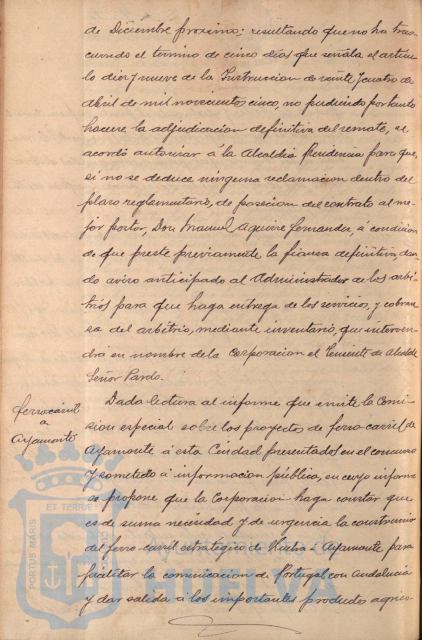 de Diciembre proximo; resultando que no ha tras-
currido el termino de cinco dias que señala el articu-
lo diez y nueve de la Instruccion de veinte y cuatro de
abril de mil novecientos cinco, no pudiendo por tanto
hacerse la adjudicacion definitiva del remate, se
acordó autorizar á la Alcaldia Presidencia para que,
si no se deduce ninguna reclamacion dentro del
plazo reglamentario, de posesion del contrato al me-
jor postor, Don Manuel Aguirre Fernandez, á condicion
de que preste previamente la fianza definitiva, dan-
do aviso anticipado al Administrador de los arbi-
trios para que haga entrega de los servicios, y cobran-
sa del arbitrio, mediante inventario, que interven-
drá en nombre de la Corporacion el Teniente de Alcalde
Señor Pardo.
ferrocarril
a
Ayamonte
Dada lectura al informe que emite la Comi-
sion especial sobre los proyectos de ferro-carril de
Ayamonte á esta Ciudad presentados en el concurso
y sometido á informacion pública, en cuyo informe
se propone que la Corporacion haga constar que
es de suma necesidad y de urgencia la construccion
del ferro-carril estrategico de Huelva á Ayamonte para
facilitar la comunicacion de Portugal con Andalucia
y dar salida á los importantes productos agrico-
PORTUS MARIS
ET TERRAE
Ayuntamiento de
HUELVA